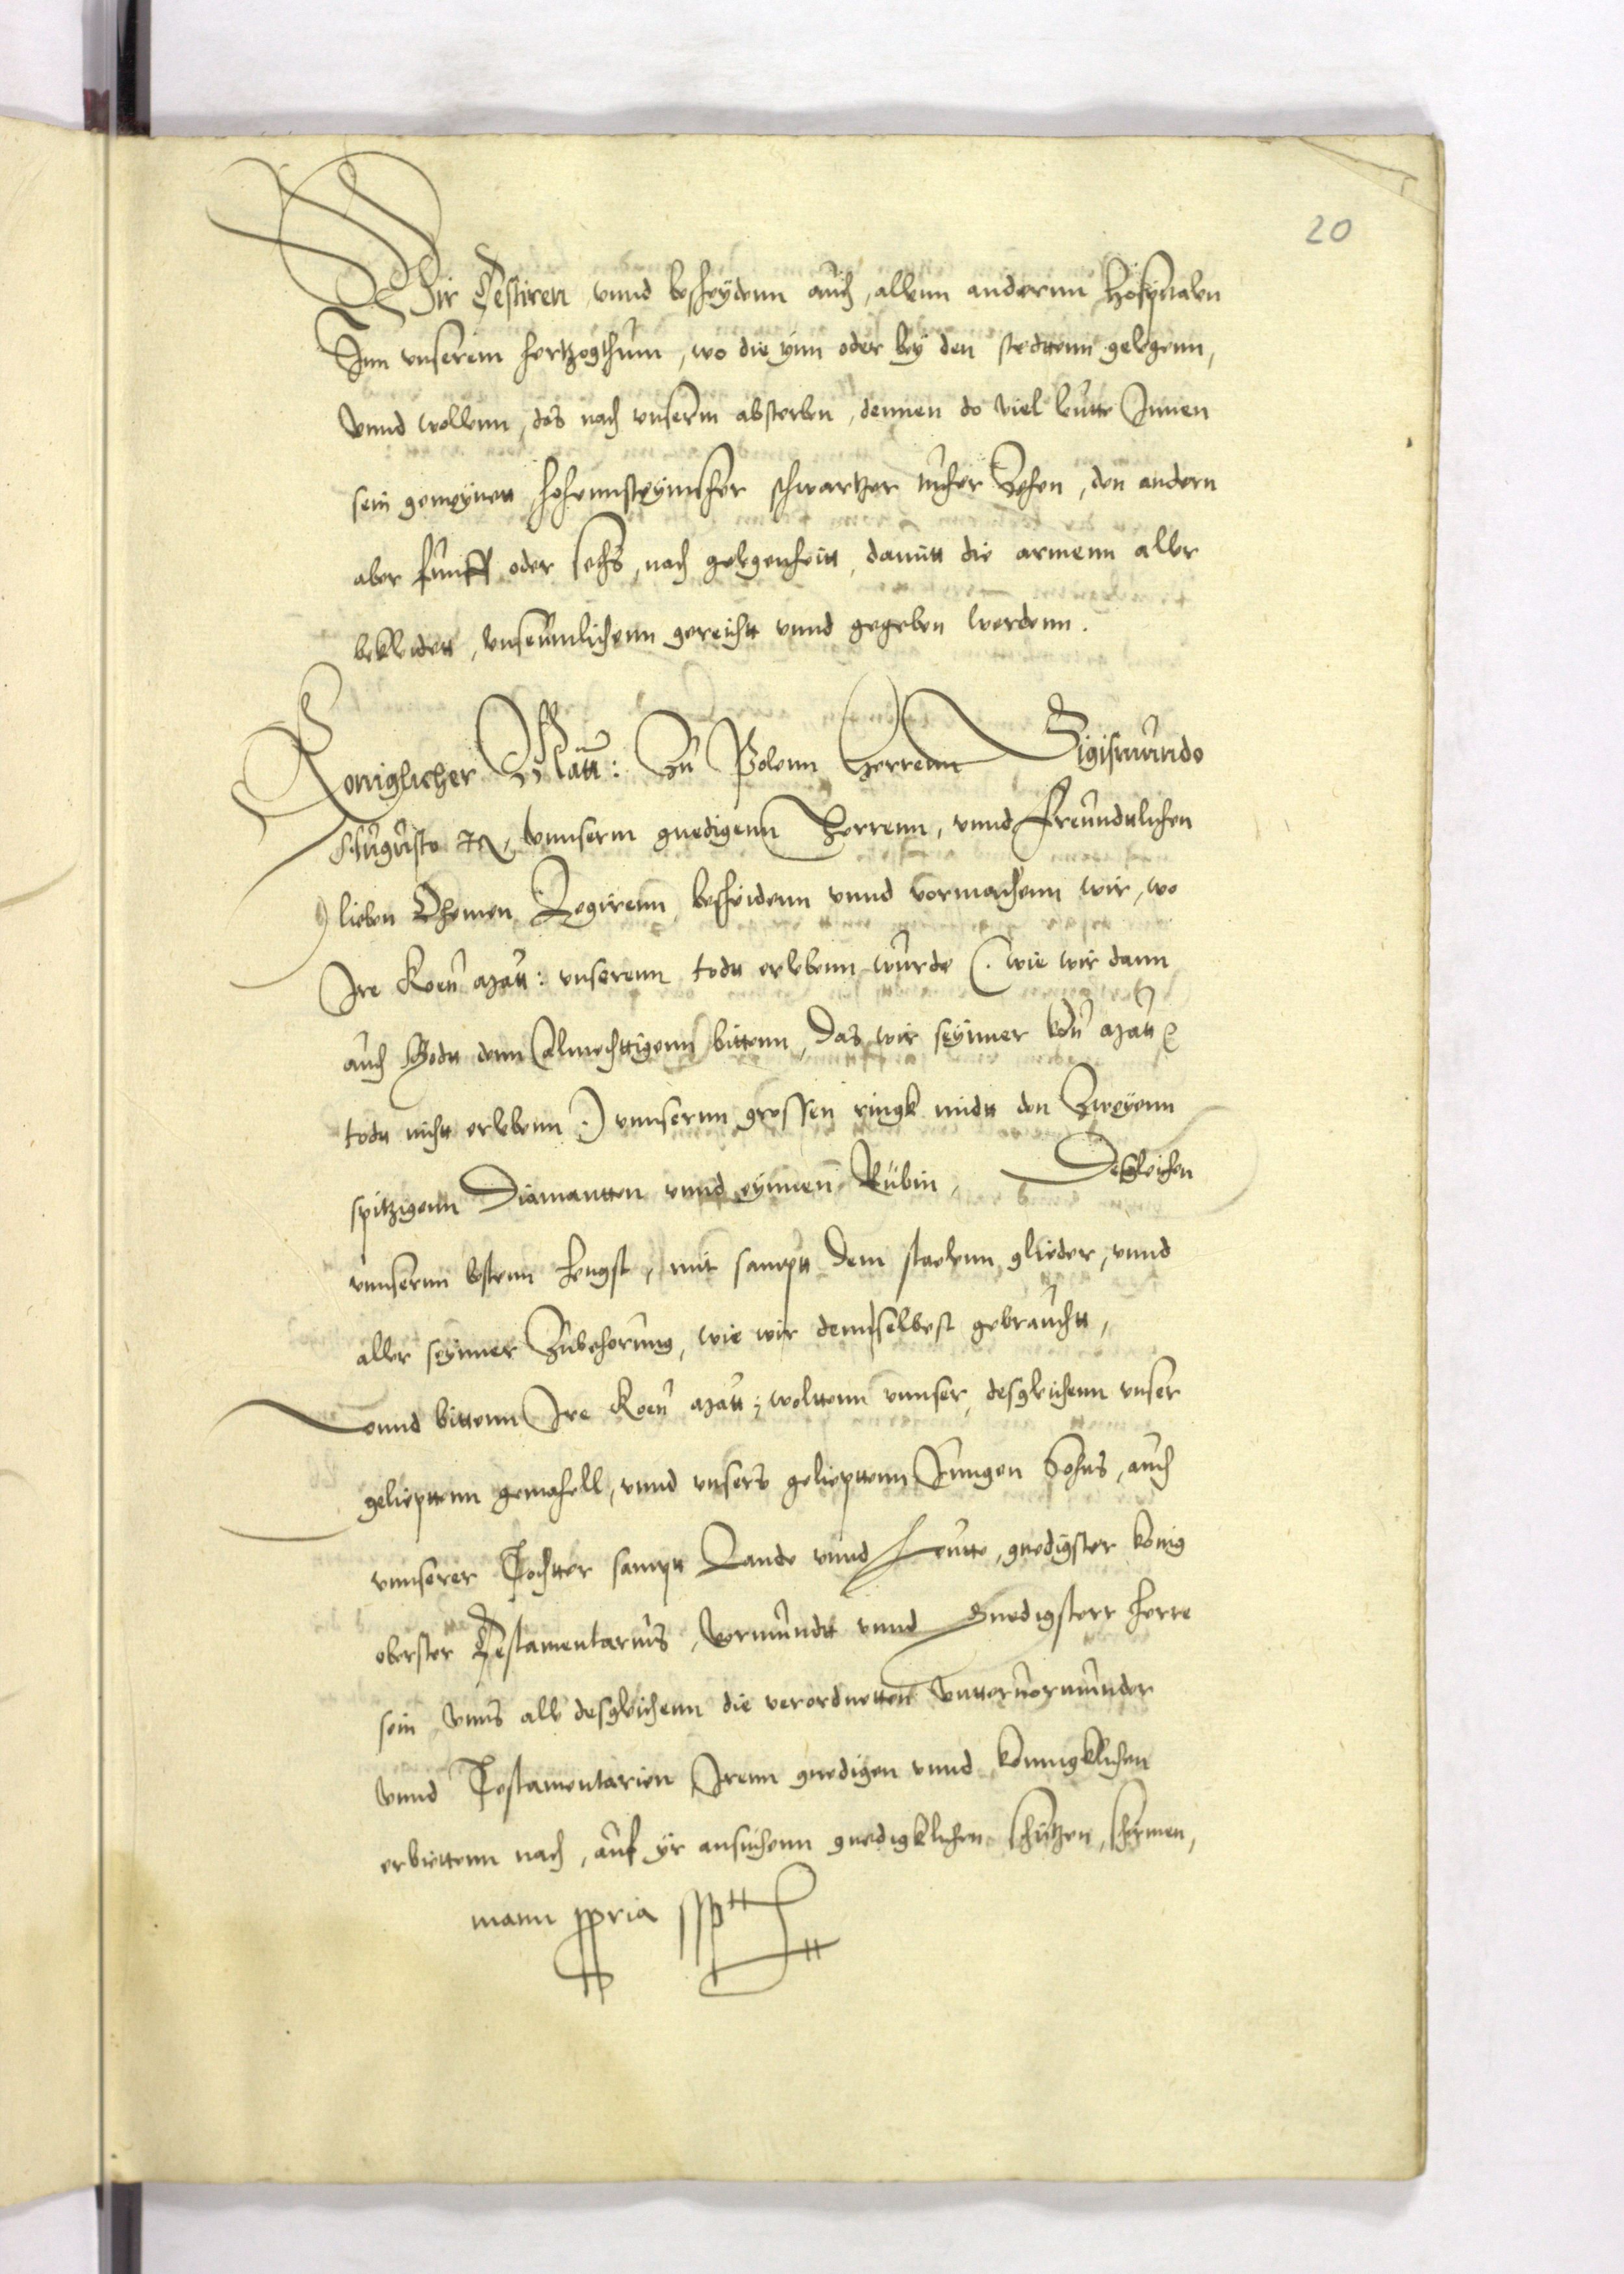 20
Wir Testiren vnnd bescheydenn auch, allenn anderenn Hospitalen
Inn vnserem hertzogthum, wo die ynn oder bey den stedtenn gelegenn,
vnnd wollenn, das nach vnserm absterben, dennen do viel leutte Innen
sein gemeynen hohennsteynischer schwartzer tucher Zehen, den andern
aber funff oder sechs, nach gelegenheitt, damitt die armenn alle
bekleidett, vnseumlichenn gereicht vnnd gegeben werdenn.
Koniglicher Matt: Zu Polenn Herrenn Sigismundo
Augusto ꝛc, vnnserm gnedigenn Herrenn, vnnd Freundtlichen
lieben Ohemen Legirenn bescheidenn vnnd vormachenn wir, wo
Ire Koen matt: vnserenn todtt erlebenn wurde (. wie wir dann
auch Godtt denn Almechttigenn bittenn, das wir seynner kön matt
todtt nicht erlebenn .) vnnserenn grossen ringk midtt den Zweyenn
spitzigenn Diamantten vnnd eynnen Rubin, Desgleichen
vnnserenn bestenn hengst, mit samptt dem staelenn glieder, vnnd
aller seynner Zubehorung, wie wir denn selbest gebrauchtt,
vnnd bittenn Ire Koen matt; wolttenn vnnser, desgleichenn vnser
geliepttenn gemahell, vnnd vnsers geliepttenn Jungen Sohns, auch
vnnserer Tochtter samptt Lande vnnd Leutte, gnedigster konig
oberster Testamentarius, Vormundtt vnnd Gnedigsterr herre
sein vnns alle desgleichenn die verordnetten vnttervormunder
vnnd Testamentarien Irenn gnedigen vnnd konnigklichen
erbiettenn nach, auf yr ansuchenn gnedigklichen schutzen, schirmen,
manu ppria sspt